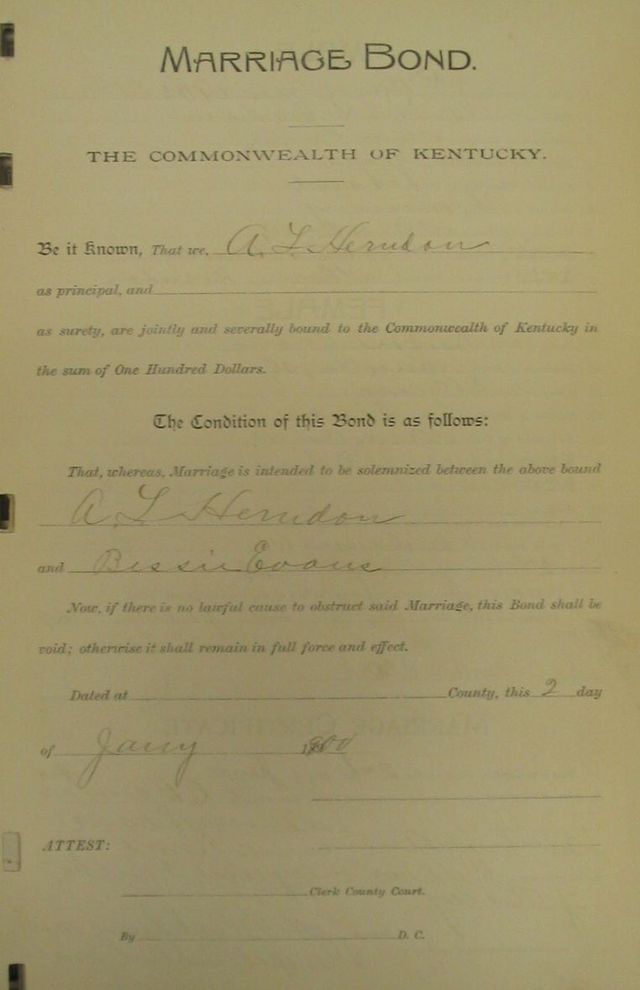 MARRIAGE BOND.
THE COMMONWEALTH OF KENTUCKY.
Be it Known, That we, A. L. Herndon
as principal, and
as surety, are jointly and severally bound to the Commonwealth of Kentucky in
the sum of One Hundred Dollars.
The Condition of this Bond is as follows:
That, whereas, Marriage is intended to be solemnized between the above bound
A. L Herndon
and Bessie Evans
Now, if there is no lawful cause to obstruct said Marriage, this Bond shall be
void; otherwise it shall remain in full force and effect.
Dated at County, this 2 day
of Jany 1900
ATTEST:
Clerk County Court.
By D. C.